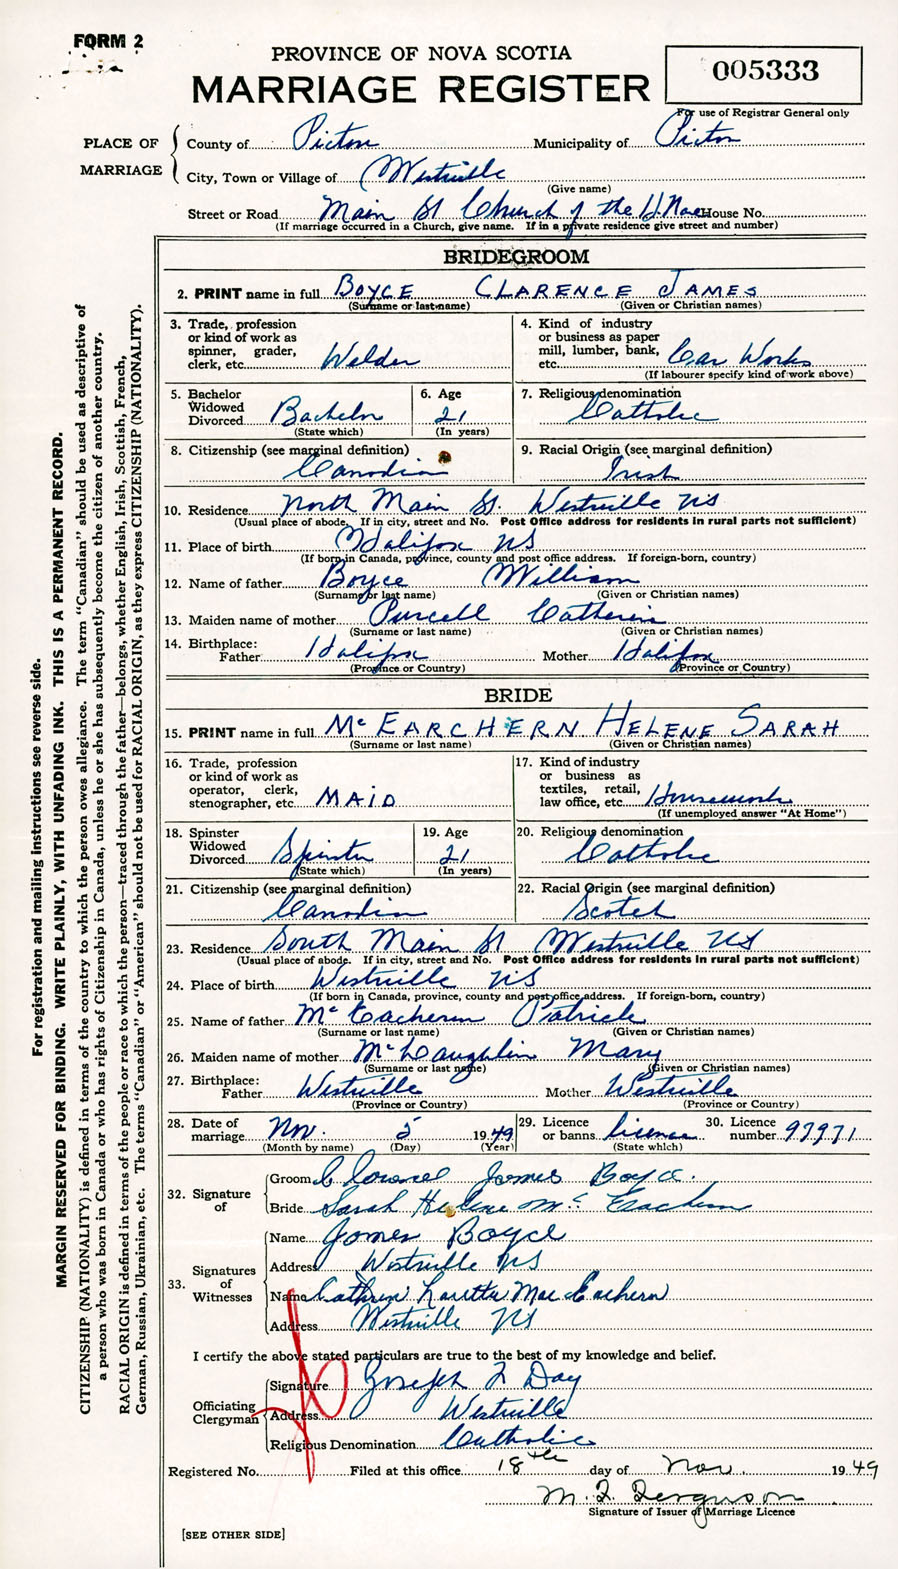 FORM 2
PROVINCE OF NOVA SCOTIA
MARRIAGE REGISTER
005333
For use of Registrar General only
PLACE OF MARRIAGE
County of Pictou Municipality of Pictou
City, Town or Village of Westville
(Give name)
Street or Road Main St Church of the H. Name House No.
(If marriage occurred in a Church, give name. If in a private residence give street and number)
BRIDEGROOM
2. PRINT name in full BOYCE CLARENCE JAMES
(Surname or last name) (Given or Christian names)
3. Trade, profession or kind of work as spinner, grader, clerk, etc. Welder
4. Kind of industry or business as paper mill, lumber, bank, etc. Car Works
(If labourer specify kind of work above)
5. Bachelor Widowed Divorced Bachelor
(State which)
6. Age 21
(In years)
7. Religious denomination Catholic
8. Citizenship (see marginal definition) Canadian
9. Racial Origin (see marginal definition) Irish
10. Residence North Main St. Westville NS
(Usual place of abode. If in city, street and No. Post Office address for residents in rural parts not sufficient)
11. Place of birth Halifax NS
(If born in Canada, province, county and post office address. If foreign-born, country)
12. Name of father Boyce William
(Surname or last name) (Given or Christian names)
13. Maiden name of mother Purcell Catherin
(Surname or last name) (Given or Christian names)
14. Birthplace: Father Halifax Mother Halifax
(Province or Country) (Province or Country)
BRIDE
15. PRINT name in full McEARCHERN HELENE SARAH
(Surname or last name) (Given or Christian names)
16. Trade, profession or kind of work as operator, clerk, stenographer, etc. MAID
17. Kind of industry or business as textiles, retail, law office, etc. Housework
(If unemployed answer "At Home")
18. Spinster Widowed Divorced Spinster
(State which)
19. Age 21
(In years)
20. Religious denomination Catholic
21. Citizenship (see marginal definition) Canadin
22. Racial Origin (see marginal definition) Scotch
23. Residence South Main St Westville NS
(Usual place of abode. If in city, street and No. Post Office address for residents in rural parts not sufficient)
24. Place of birth Westville NS
(If born in Canada, province, county and post office address. If foreign-born, country)
25. Name of father McEachern Patrick
(Surname or last name) (Given or Christian names)
26. Maiden name of mother McLaughlin Mary
(Surname or last name) (Given or Christian names)
27. Birthplace: Father Westville Mother Westville
(Province or Country) (Province or Country)
28. Date of marriage Nov. 5 1949
(Month by name) (Day) (Year)
29. Licence or banns licence
(State which)
30. Licence number 97971
32. Signature of
Groom Clarence James Boyce.
Bride Sarah Helene McEachern
33. Signatures of Witnesses
Name James Boyce
Address Westville NS
Name Cathrin Laretta MacEachern
Address Westville NS
I certify the above stated particulars are true to the best of my knowledge and belief.
Officiating Clergyman
Signature Joseph F Day
Address Westville
Religious Denomination Catholic
Registered No. Filed at this office 18th day of Nov. 1949
M. F. Ferguson
Signature of Issuer of Marriage Licence
[SEE OTHER SIDE]
For registration and mailing instructions see reverse side.
MARGIN RESERVED FOR BINDING. WRITE PLAINLY, WITH UNFADING INK. THIS IS A PERMANENT RECORD.
CITIZENSHIP (NATIONALITY) is defined in terms of the country to which the person owes allegiance. The term "Canadian" should be used as descriptive of
a person who was born in Canada or who has rights of Citizenship in Canada, unless he or she has subsequently become the citizen of another country.
RACIAL ORIGIN is defined in terms of the people or race to which the person—traced through the father—belongs, whether English, Irish, Scottish, French,
German, Russian, Ukrainian, etc. The terms "Canadian" or "American" should not be used for RACIAL ORIGIN, as they express CITIZENSHIP (NATIONALITY).